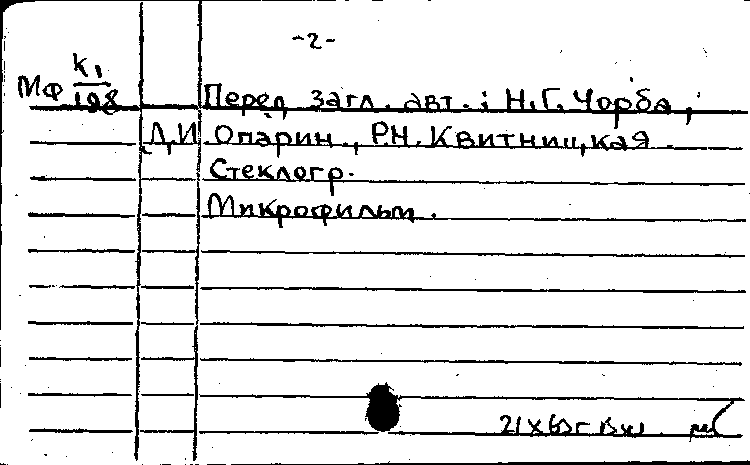 -2-
МФ К1/198
Перед загл. авт.: Н.Г. Чорба,
Д.И. Опарин, Р.Н. Квитницкая.
Стеклогр.
Микрофильм.